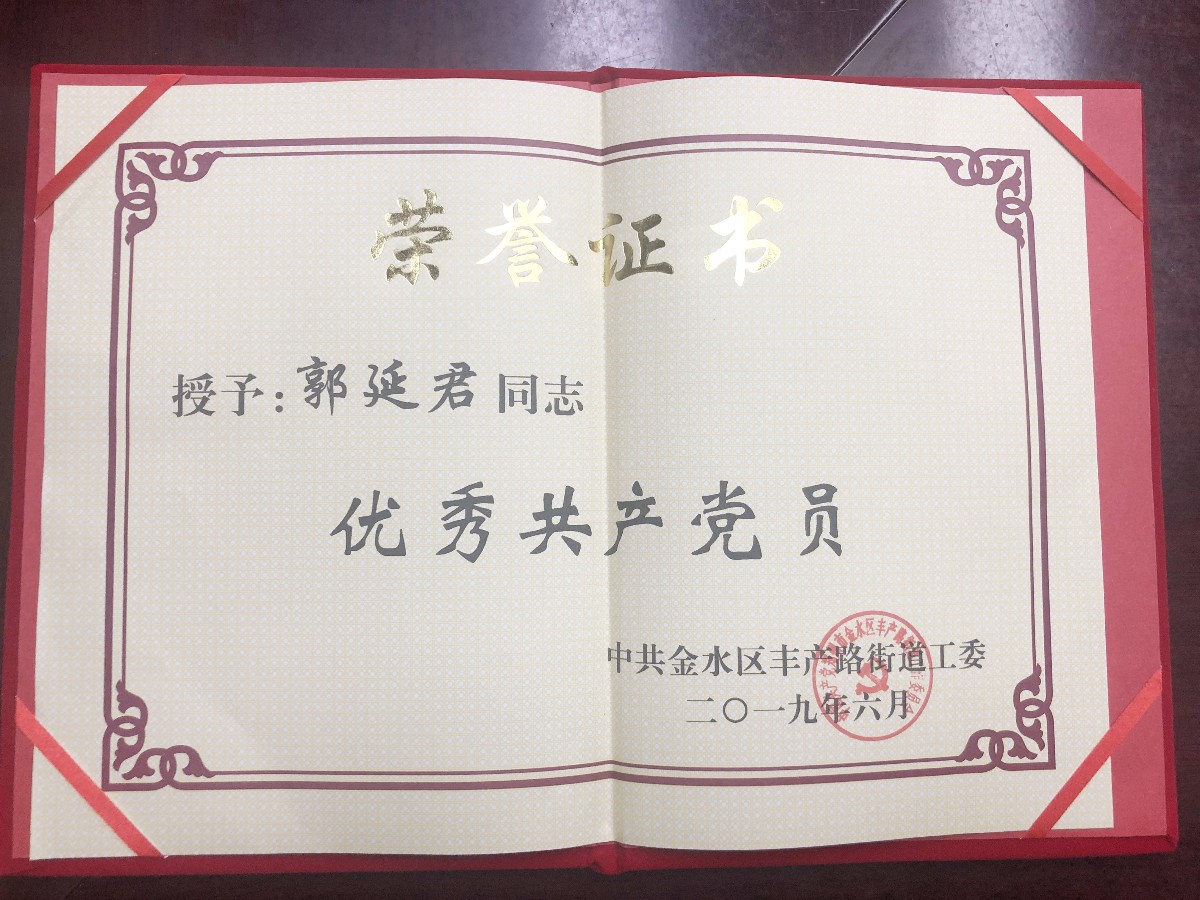 荣誉证书
授予：郭延君同志
优秀共产党员
中共金水区丰产路街道工委
二〇一九年六月